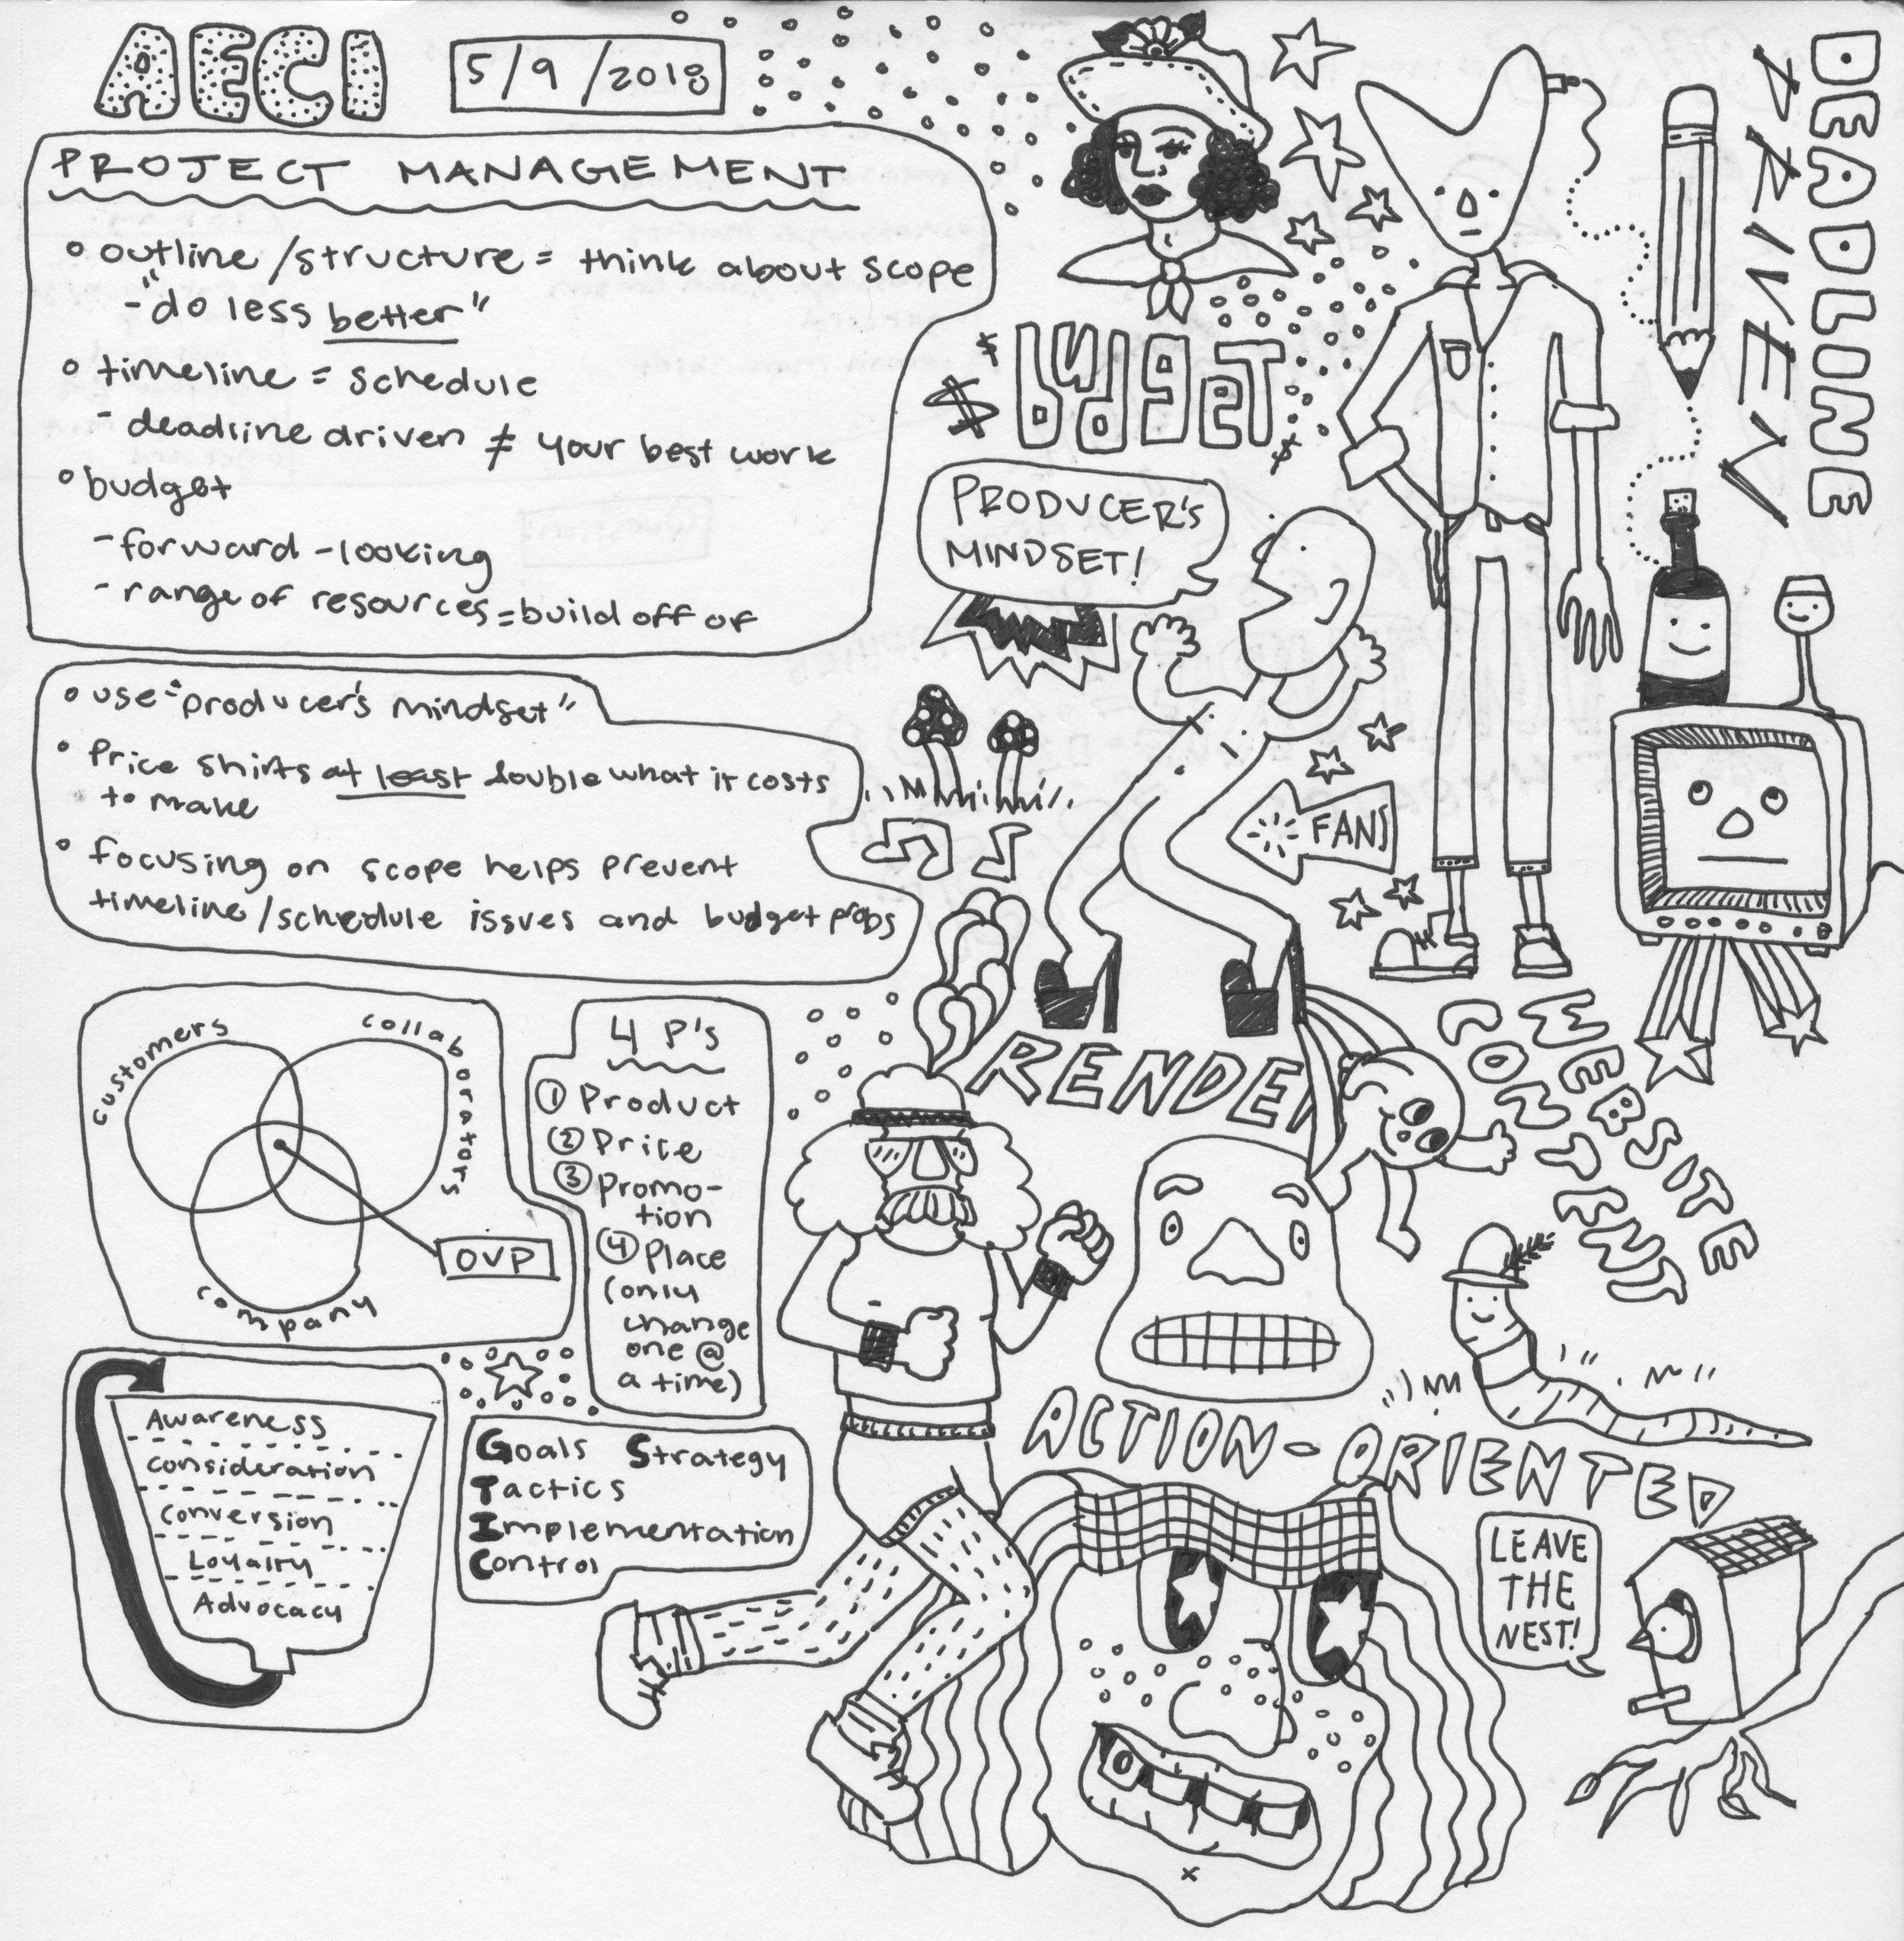 AECI
5/9/2018
PROJECT MANAGEMENT
outline/structure = think about scope
- "do less better"
timeline = schedule
- deadline driven ≠ your best work
budget
- forward-looking
- range of resources = build off of
use "producer's mindset"
Price shirts at least double what it costs
to make
focusing on scope helps prevent
timeline/schedule issues and budget probs
customers
collaborators
company
OVP
4 P's
① Product
② Price
③ Promo-
tion
④ Place
(only
change
one @
a time)
Awareness
consideration
conversion
Loyalty
Advocacy
Goals Strategy
Tactics
Implementation
Control
$ $ budget $
PRODUCER'S
MINDSET!
DEADLINE
DRIVEN
FANS
RENDER
WEBSITE
CONTENT
ACTION-ORIENTED
LEAVE
THE
NEST!